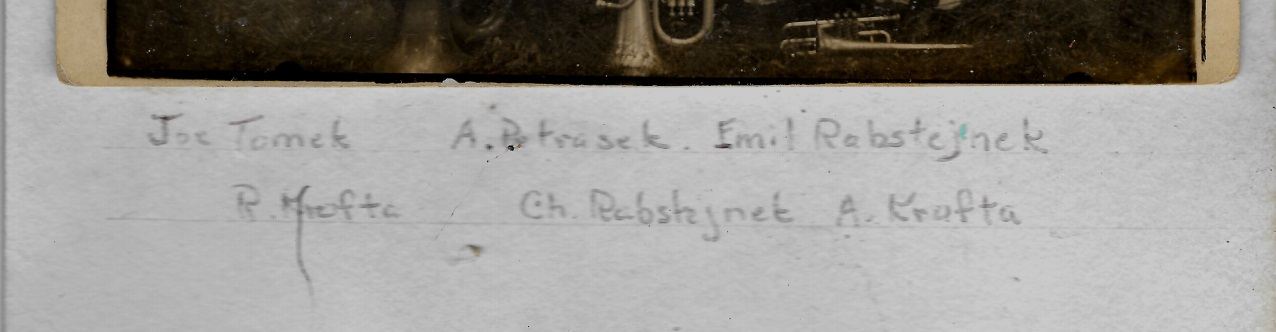 Joe Tomek A. Petrasek. Emil Rabstejnek
R. Krofta Ch. Rabstejnek A. Krofta